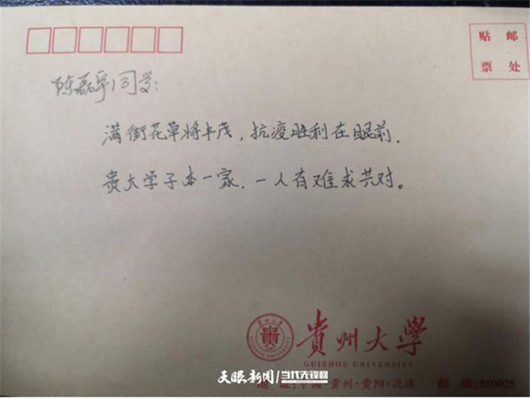 贴 邮
票 处
陈磊 同学:
满街花草将丰茂,抗疫胜利在眼前.
贵大学子本一家.一人有难求共对。
贵州大学
GUIZHOU UNIVERSITY
天眼新闻 当代先锋网
地 址:中国·贵州·贵阳·花溪 邮 编:550025